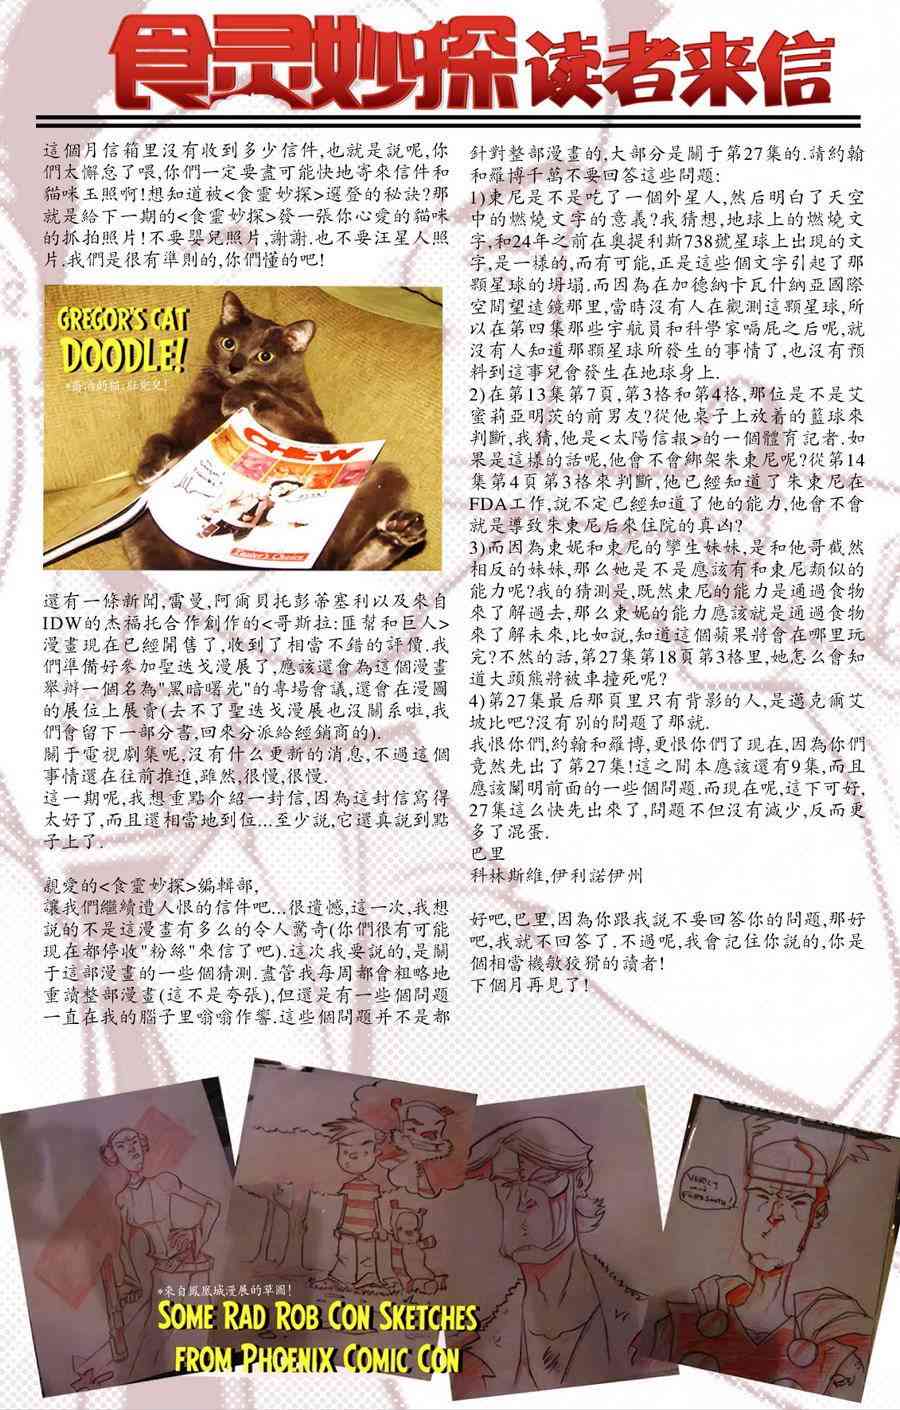 食灵妙探读者来信
這個月信箱里沒有收到多少信件,也就是說呢,你
們太懈怠了喂,你們一定要盡可能快地寄來信件和
貓咪玉照啊!想知道被<食靈妙探>選登的秘訣?那
就是給下一期的<食靈妙探>發一張你心愛的貓咪
的抓拍照片!不要嬰兒照片,謝謝.也不要汪星人照
片.我們是很有準則的,你們懂的吧!
GREGOR'S CAT
DOODLE!
CHEW
還有一條新聞,雷曼,阿爾貝托彭蒂塞利以及來自
IDW的杰福托合作創作的<哥斯拉:匪幫和巨人>
漫畫現在已經開售了,收到了相當不錯的評價.我
們準備好參加聖迭戈漫展了,應該還會為這個漫畫
舉辦一個名為"黑暗曙光"的專場會議,還會在漫圖
的展位上展賣(去不了聖迭戈漫展也沒關系啦,我
們會留下一部分書,回來分派給經銷商的).
關于電視劇集呢,沒有什么更新的消息,不過這個
事情還在往前推進,雖然,很慢,很慢.
這一期呢,我想重點介紹一封信,因為這封信寫得
太好了,而且還相當地到位...至少說,它還真説到點
子上了.
親愛的<食靈妙探>編輯部,
讓我們繼續遭人恨的信件吧...很遺憾,這一次,我想
説的不是這漫畫有多么的令人驚奇(你們很有可能
現在都停收"粉絲"來信了吧).這次我要説的,是關
于這部漫畫的一些個猜測.盡管我每周都會粗略地
重讀整部漫畫(這不是夸張),但還是有一些個問題
一直在我的腦子里嗡嗡作響.這些個問題并不是都
針對整部漫畫的,大部分是關于第27集的.請約翰
和羅博千萬不要回答這些問題:
1)東尼是不是吃了一個外星人,然后明白了天空
中的燃燒文字的意義?我猜想,地球上的燃燒文
字,和24年之前在奧提利斯738號星球上出現的文
字,是一樣的,而有可能,正是這些個文字引起了那
顆星球的坍塌.而因為在加德納卡瓦什納亞國際
空間望遠鏡那里,當時沒有人在觀測這顆星球,所
以在第四集那些宇航員和科學家嗝屁之后呢,就
沒有人知道那顆星球所發生的事情了,也沒有預
料到這事兒會發生在地球身上.
2)在第13集第7頁,第3格和第4格,那位是不是艾
蜜莉亞明茨的前男友?從他桌子上放着的籃球來
判斷,我猜,他是<太陽信報>的一個體育記者.如
果是這樣的話呢,他會不會綁架朱東尼呢?從第14
集第4頁第3格來判斷,他已經知道了朱東尼在
FDA工作,説不定已經知道了他的能力,他會不會
就是導致朱東尼后來住院的真凶?
3)而因為東妮和東尼的孿生妹妹,是和他哥截然
相反的妹妹,那么她是不是應該有和東尼類似的
能力呢?我的猜測是,既然東尼的能力是通過食物
來了解過去,那么東妮的能力應該就是通過食物
來了解未來,比如説,知道這個蘋果將會在哪里玩
完?不然的話,第27集第18頁第3格里,她怎么會知
道大頭熊將被車撞死呢?
4)第27集最后那頁里只有背影的人,是邁克爾艾
坡比吧?沒有別的問題了那就.
我恨你們,約翰和羅博,更恨你們了現在,因為你們
竟然先出了第27集!這之間本應該還有9集,而且
應該闡明前面的一些個問題.而現在呢,這下可好,
27集這么快先出來了,問題不但沒有減少,反而更
多了混蛋.
巴里
科林斯維,伊利諾伊州
好吧,巴里,因為你跟我説不要回答你的問題,那好
吧,我就不回答了.不過呢,我會記住你説的,你是
個相當機敏狡猾的讀者!
下個月再見了!
VERILY
*來自鳳凰城漫展的草圖!
SOME RAD ROB CON SKETCHES
FROM PHOENIX COMIC CON